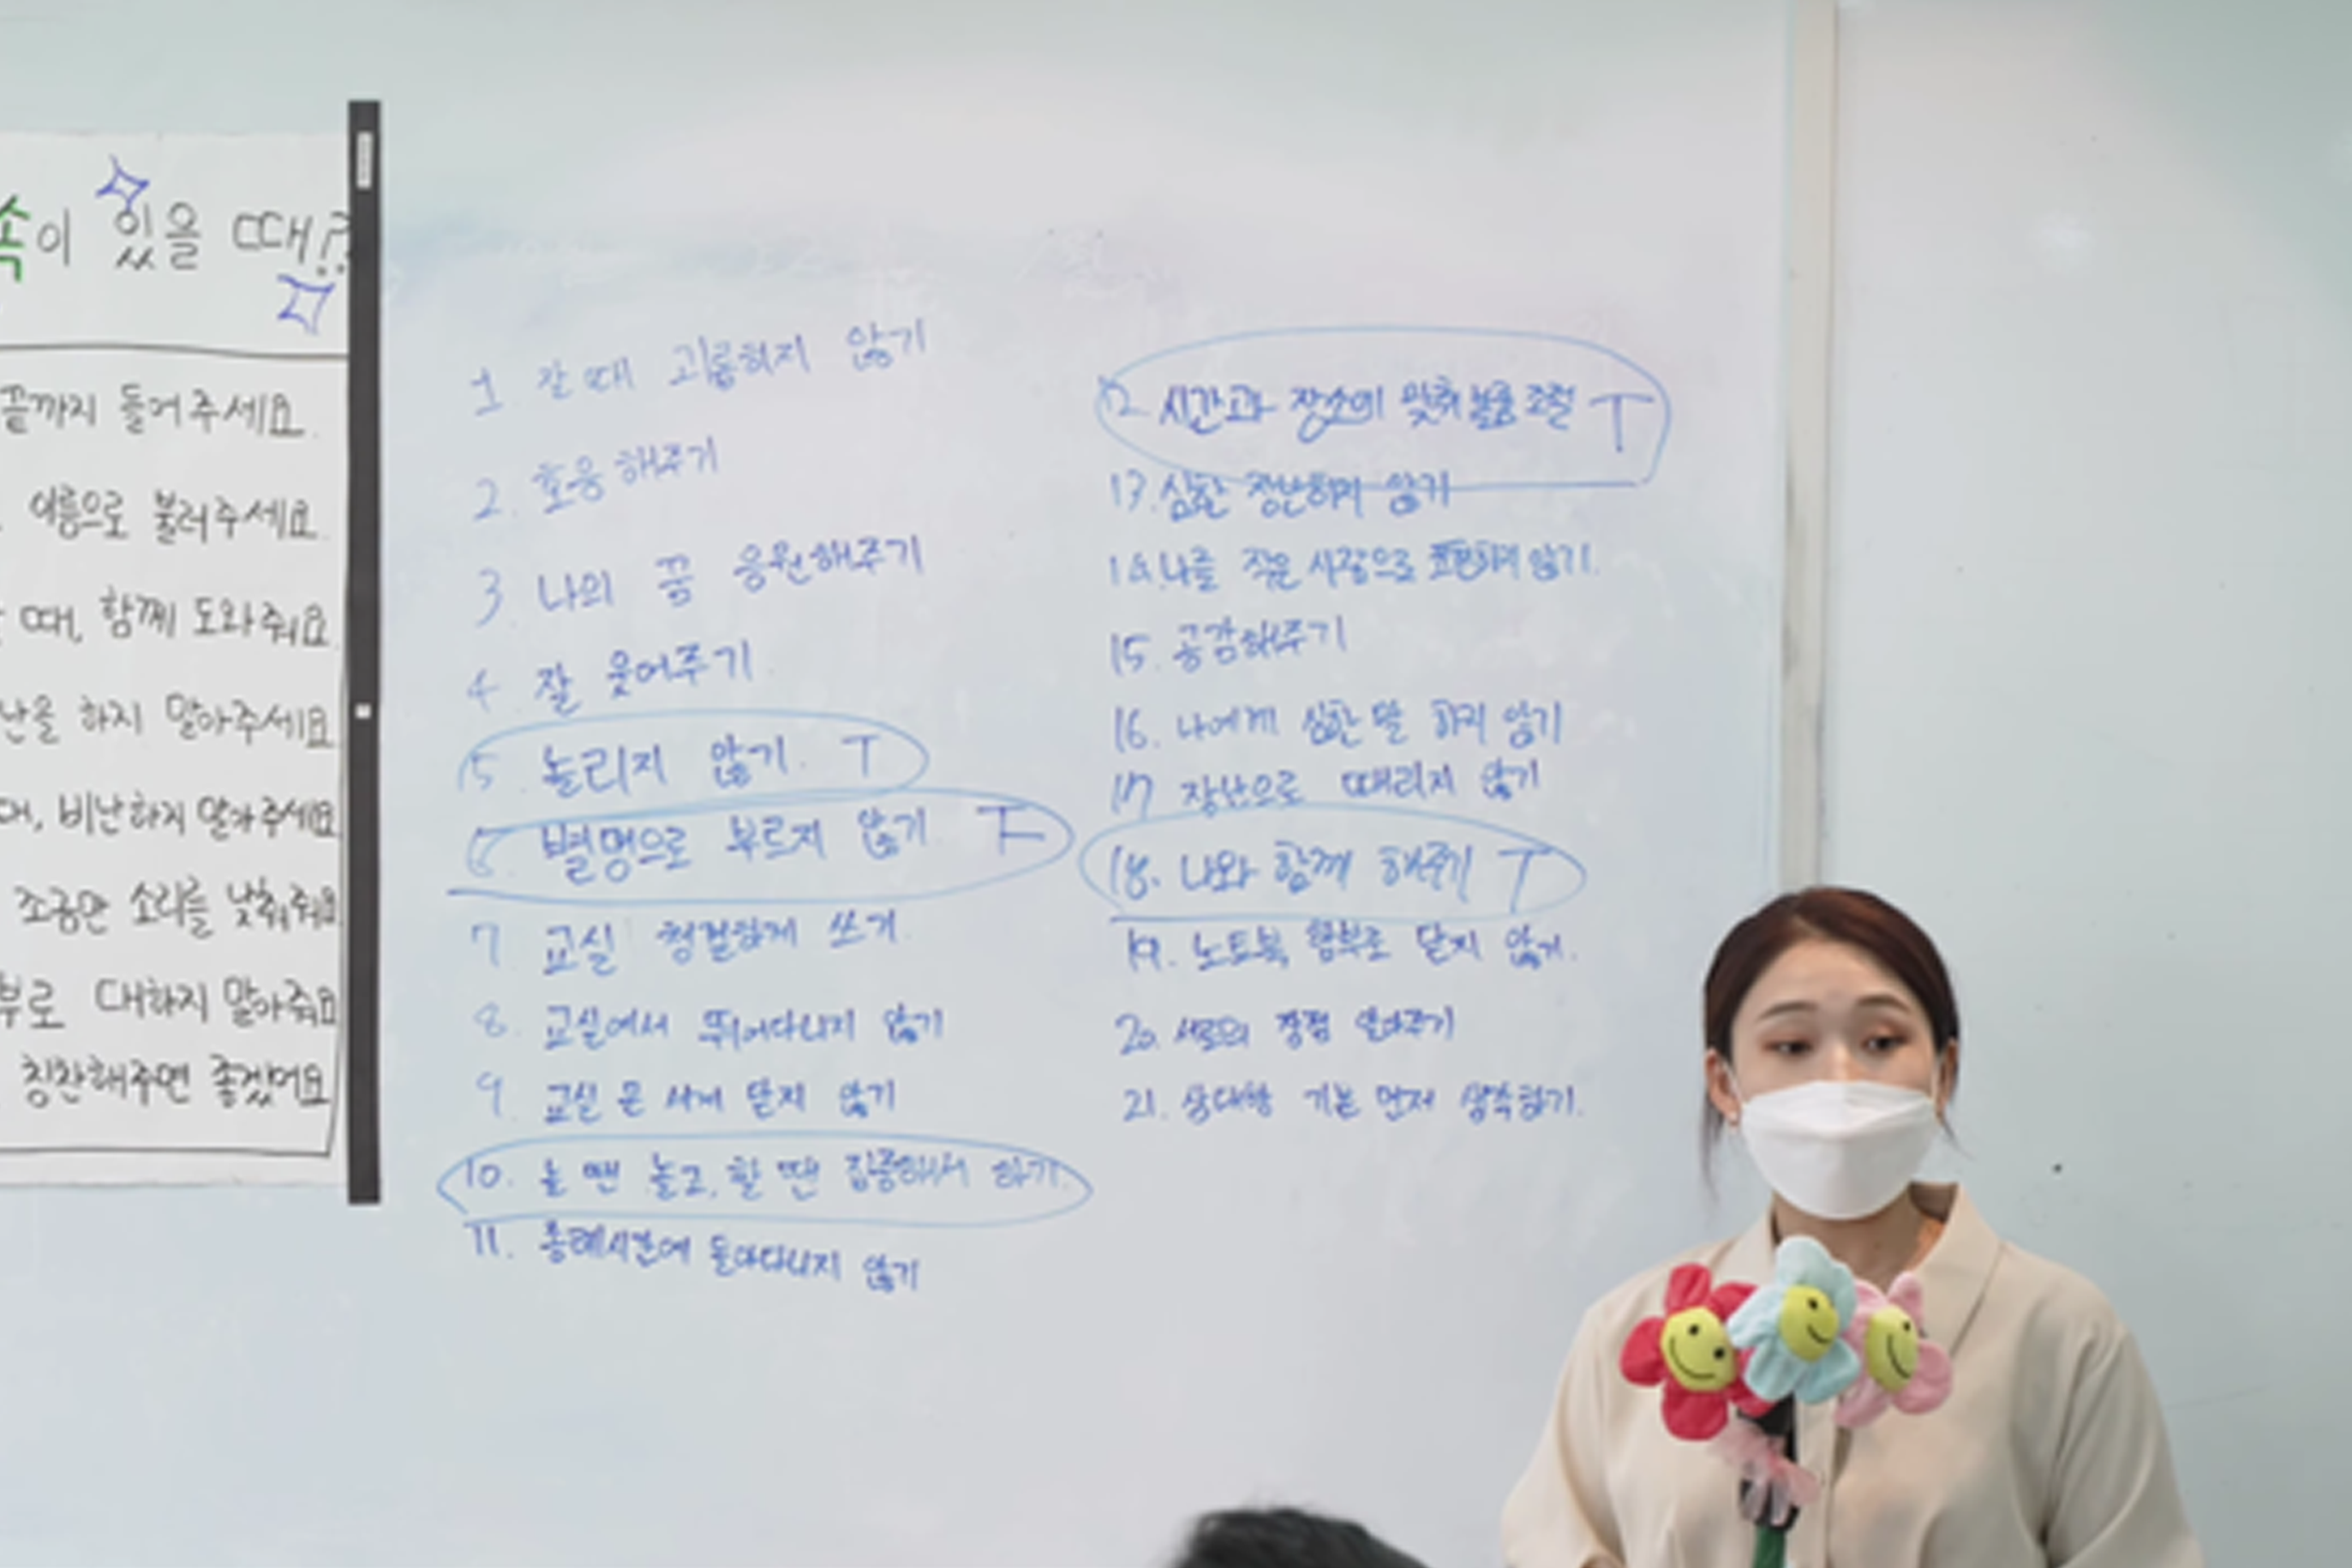 속이 있을 때??
끝까지 들어주세요.
이름으로 불러주세요.
때, 함께 도와줘요
난을 하지 말아주세요
때, 비난하지 말아주세요
조금만 소리를 낮춰줘요
부로 대하지 말아줘요
칭찬해주면 좋겠어요
1. 잘 때 괴롭히지 않기
2. 호응해주기
3. 나의 꿈 응원해주기
4. 잘 웃어주기
5. 놀리지 않기. T
6. 별명으로 부르지 않기 T
7. 교실 청결하게 쓰기.
8. 교실에서 뛰어다니지 않기
9. 교실 문 세게 닫지 않기
10. 놀 땐 놀고, 할 땐 집중해서 하기.
11. 종례시간에 돌아다니지 않기
12. 시간과 장소에 맞춰 볼륨 조절 T
13. 심한 장난하지 않기
14. 나를 작은 사람으로 표현하지 않기.
15. 공감해주기
16. 나에게 심한 말 하지 않기
17. 장난으로 때리지 않기
18. 나와 함께 해주기 T
19. 노트북 함부로 닫지 않기.
20. 서로의 장점 알아주기
21. 상대방 기분 먼저 생각하기.